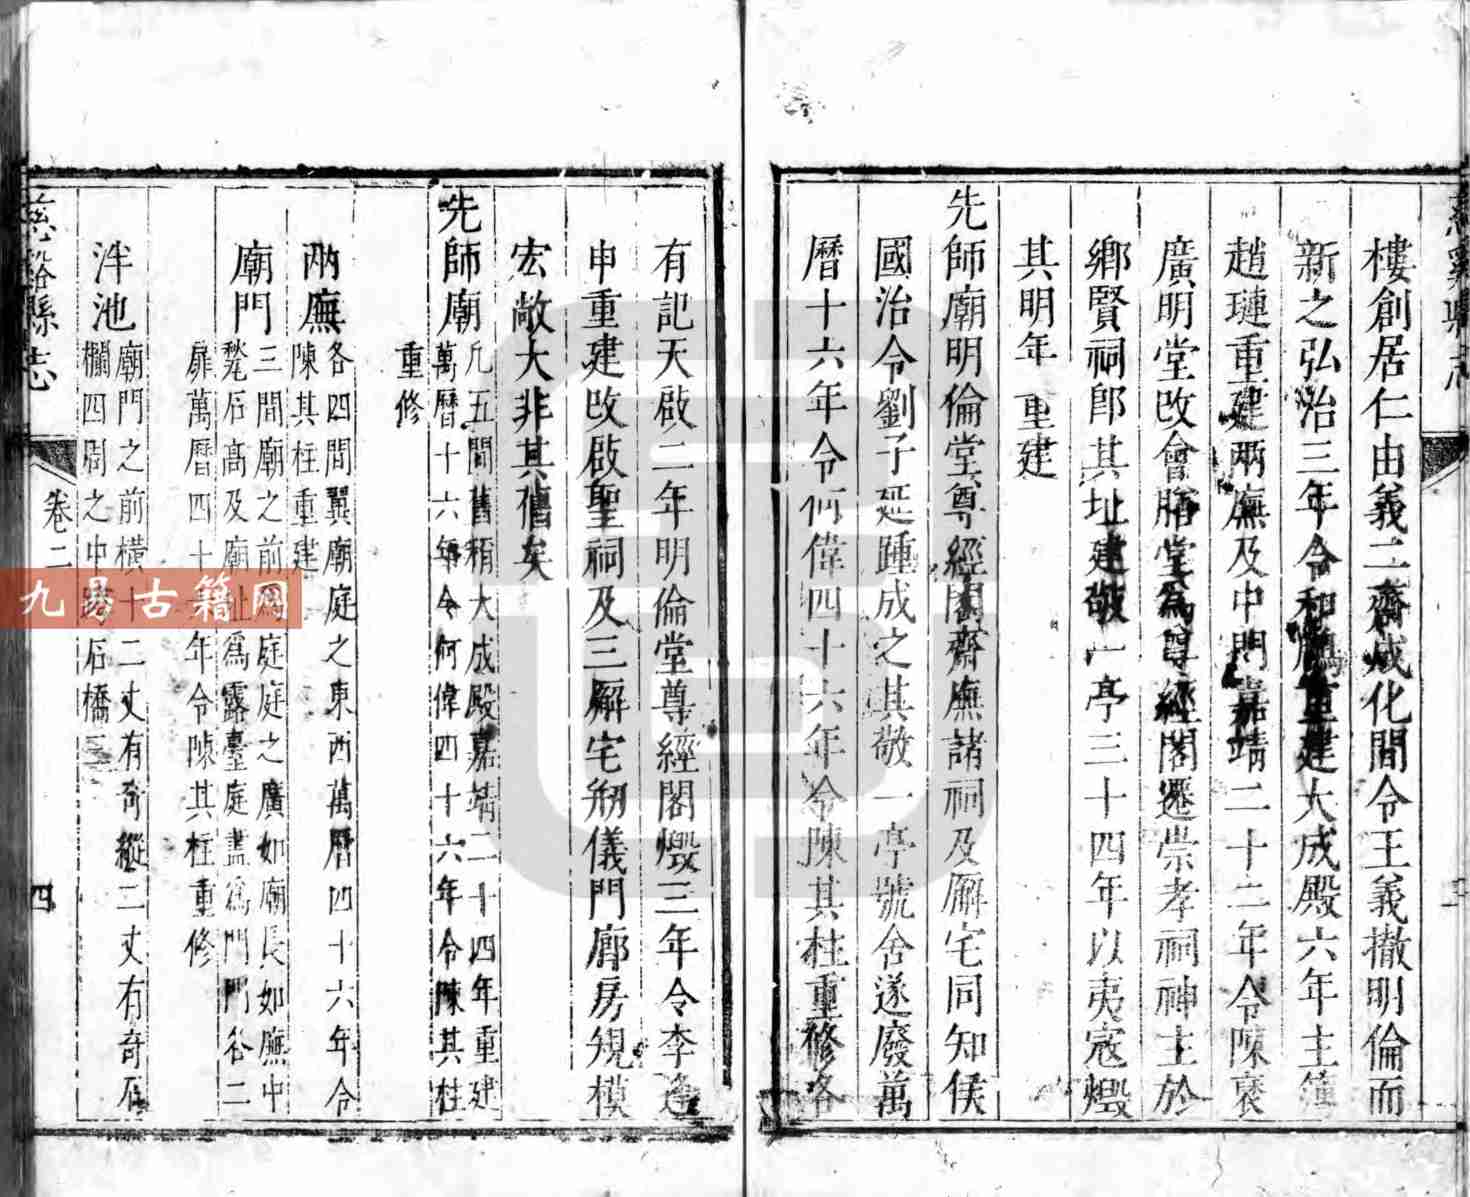 樓創居仁由義二齋成化間令王義撤明倫而
新之弘治三年令和鵬重建大成殿六年主簿
趙璉重建兩廡及中門嘉靖二十二年令陳褒
廣明堂改會膳堂為尊經閣遷崇孝祠神主於
鄉賢祠卽其址建敬一亭三十四年以夷寇燬
其明年重建
先師廟明倫堂尊經閣齋廡諸祠及廨宅同知侯
國治令劉子延踵成之其敬一亭號舍遂廢萬
曆十六年令何偉四十六年令陳其柱重修各
有記天啟二年明倫堂尊經閣燬三年令李逢
申重建改啟聖祠及三廨宅剏儀門廊房規模
宏敞大非其舊矣
先師廟
凡五間舊稱大成殿嘉靖二十四年重建
萬曆十六年令何偉四十六年令陳其柱
重修
兩廡
各四間翼廟庭之東西萬曆四十六年令
陳其柱重建
廟門
三間廟之前為庭庭之廣如廟長如廡中
甃石高及廟址為露臺庭盡為門門各二
扉萬曆四十六年令陳其柱重修
泮池
廟門之前橫十二丈有奇縱二丈有奇石
欄四周之中跨石橋三
慈谿縣志
卷二
四
九易古籍网